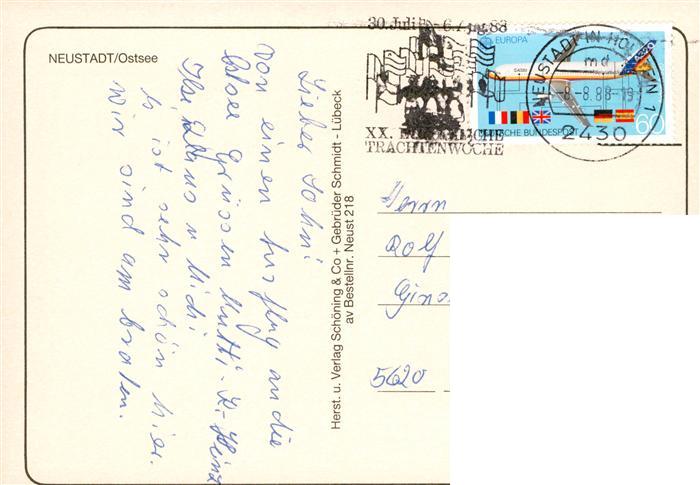 NEUSTADT/Ostsee
Lieber Sohn!
Von einen Ausflug an die
Grüssen Mutti - K.-Heinz
u Midi
ist sehr schön hier.
Wir sind am braten.
Herst. u. Verlag Schöning & Co + Gebrüder Schmidt - Lübeck
av Bestellnr. Neust 218
30. Juli - 6. Aug. 88
XX.
TRACHTENWOCHE
EUROPA
DEUTSCHE BUNDESPOST
60
NEUSTADT IN HOLSTEIN 1
md
-8.88-19
2430
Herrn
Rolf
5620